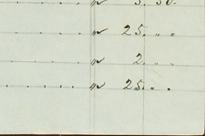 . . . . . . " 3. 50.
. . . . . . " 25. " "
. . . . . . " 2. " "
. . . . . . " 25. " "